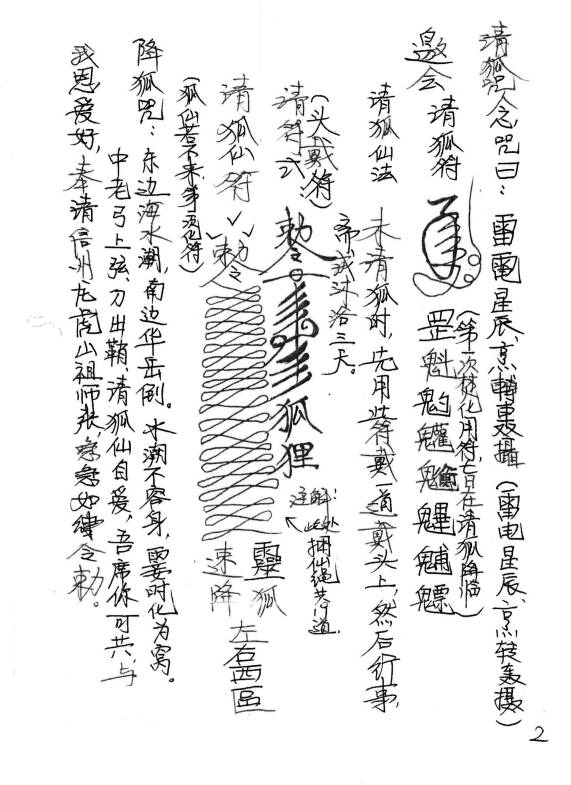 请狐咒念咒曰：雷電星辰、烹轉轟攝（雷电星辰、烹转轰摄）
邀会请狐符
（第一次焚化用符，旨在请狐降临）
罡魁魁魓魒
请狐仙法
未请狐时，先用符戴一道戴头上，然后行事，
斋戒沐浴三天。
（头戴符）
请符式：
敕令
狐狸
注解：此处捆仙绳共 道，
请狐仙符
敕令
靈狐速降
左右西區
（狐仙若不来，第 次化符）
降狐咒：东边海水潮，南边华岳倒。水潮不容身，霎时化为窝。
中老弓上弦、刀出鞘，请狐仙自爱，吾席你可共，与
我恩爱好，奉请信州龙虎山祖师张，急急如律令敕。
2